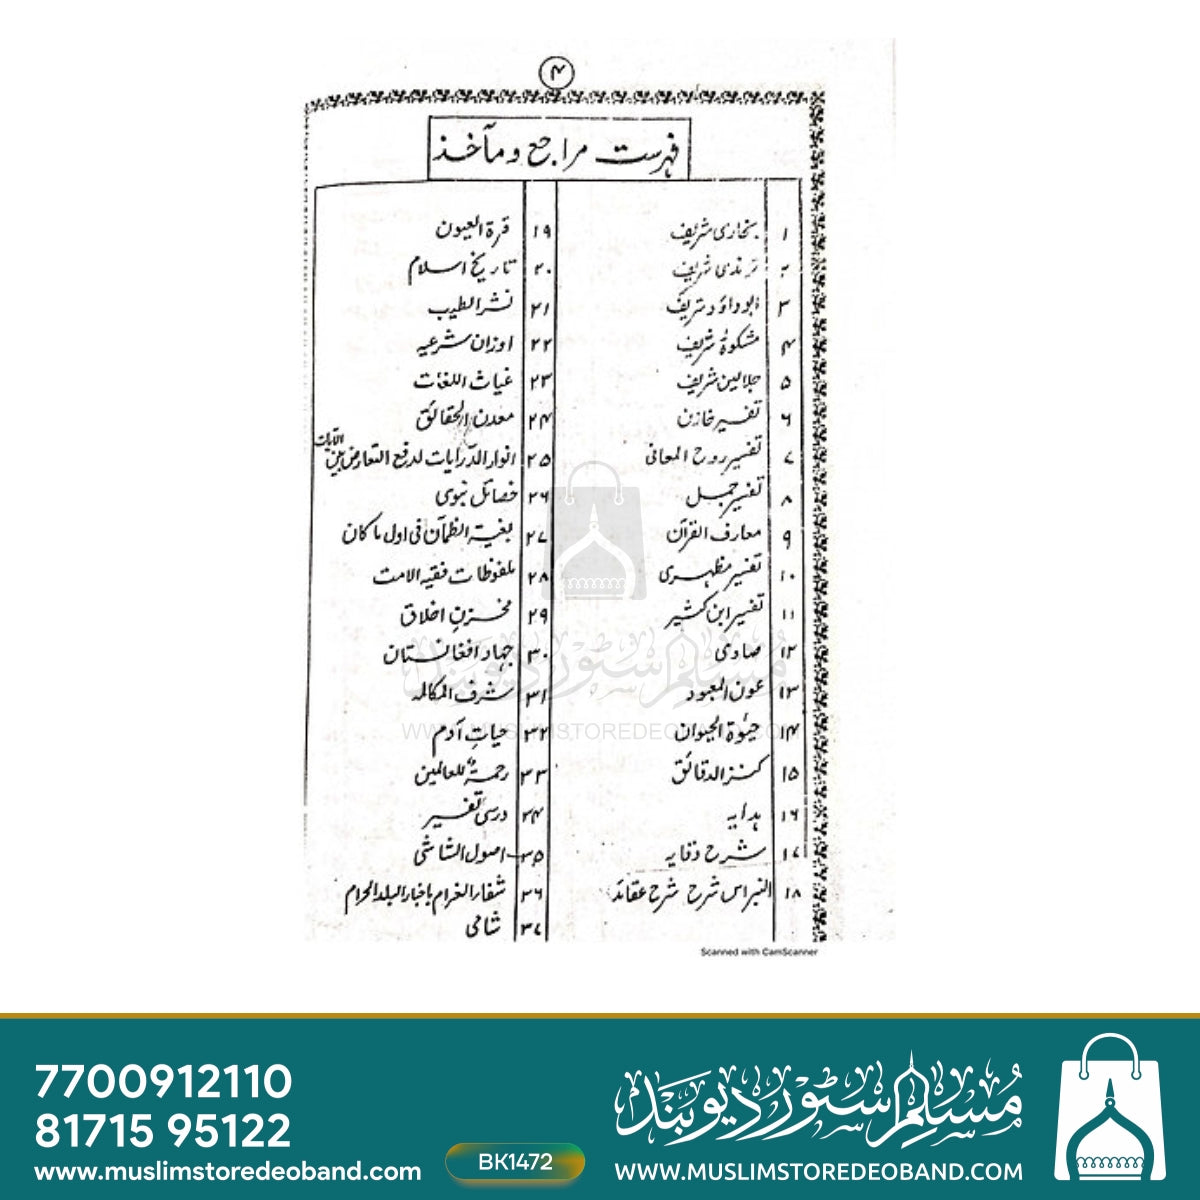 ۴
فہرست مراجع و مآخذ
۱ بخاری شریف
۲ ترمذی شریف
۳ ابوداؤد شریف
۴ مشکوٰۃ شریف
۵ جلالین شریف
۶ تفسیر خازن
۷ تفسیر روح المعانی
۸ تفسیر جمل
۹ معارف القرآن
۱۰ تفسیر مظہری
۱۱ تفسیر ابن کثیر
۱۲ صاوی
۱۳ عون المعبود
۱۴ حیٰوۃ الحیوان
۱۵ کنز الدقائق
۱۶ ہدایہ
۱۷ شرح وقایہ
۱۸ النبراس شرح شرح عقائد
۱۹ قرۃ العیون
۲۰ تاریخ اسلام
۲۱ نشر الطیب
۲۲ اوزان شرعیہ
۲۳ غیاث اللغات
۲۴ معدن الحقائق
۲۵ انوار الدرایات لدفع التعارض بین الآیات
۲۶ خصائل نبوی
۲۷ بغیۃ الظمآن فی اول ما کان
۲۸ ملفوظات فقیہ الامت
۲۹ مخزنِ اخلاق
۳۰ جہاد افغانستان
۳۱ شرف المکالمہ
۳۲ حیاتِ آدم
۳۳ رحمۃ للعالمین
۳۴ درسی تفسیر
۳۵ اصول الشاشی
۳۶ شفاء الغرام باخبار البلد الحرام
۳۷ شامی
مسلم سٹور دیوبند
WWW.MUSLIMSTOREDEOBAND.COM
Scanned with CamScanner
7700912110
81715 95122
www.muslimstoredeoband.com
BK1472
مسلم سٹور دیوبند
WWW.MUSLIMSTOREDEOBAND.COM